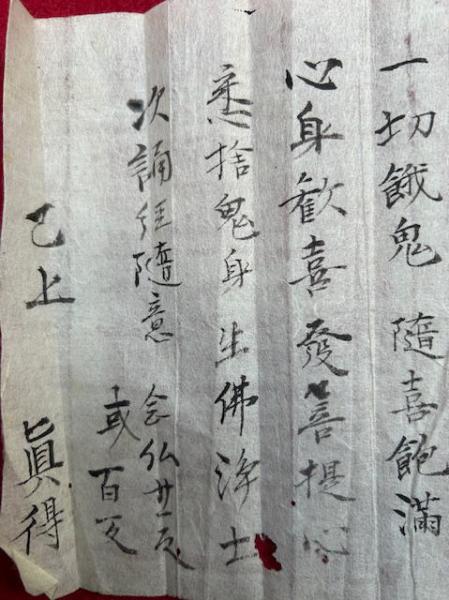 一切餓鬼 隨喜飽滿
心身歡喜發菩提心
悉捨鬼身生佛淨土
次誦経隨意 念仏廿一反
或百反
已上 眞得